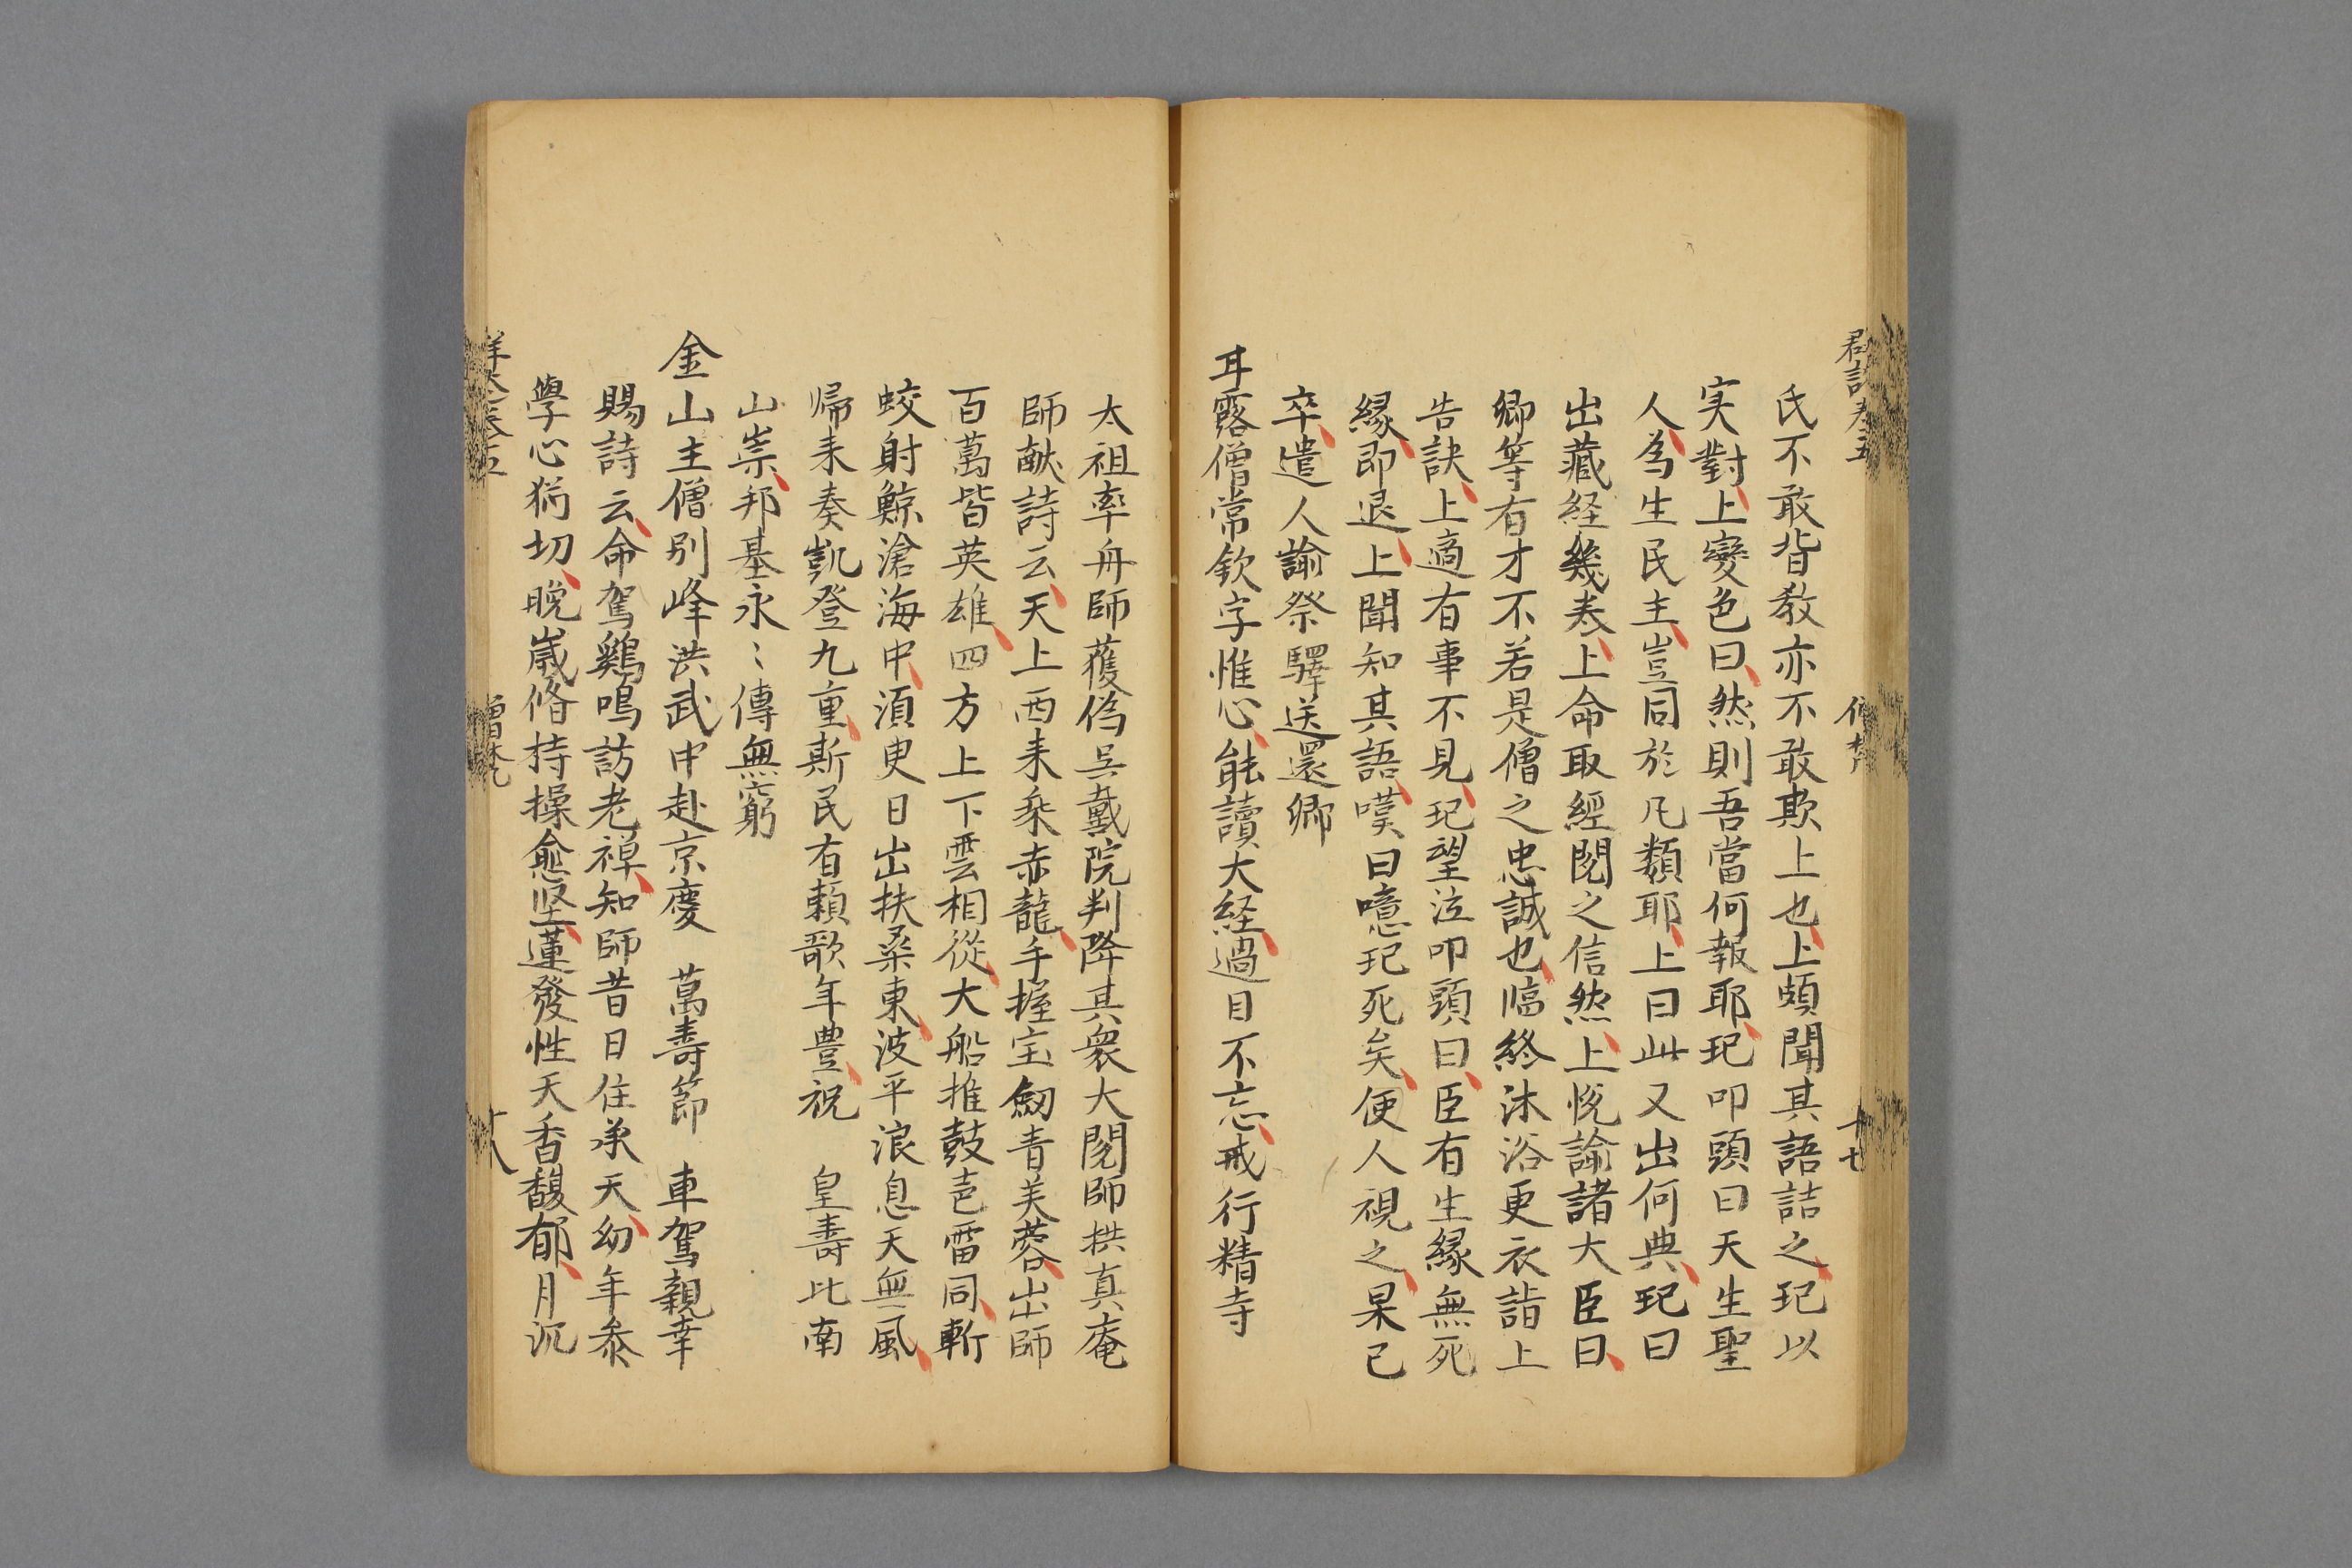 氏不敢背教亦不敢欺上也上頗聞其語詰之玘以
実對上變色曰然則吾當何報耶玘叩頭曰天生聖
人為生民主豈同於凡類耶上曰此又出何典玘曰
出藏経幾卷上命取經閱之信然上悅諭諸大臣曰
卿等有才不若是僧之忠誠也臨終沐浴更衣詣上
告訣上適有事不見玘望泣叩頭曰臣有生緣無死
緣即退上聞知其語嘆曰噫玘死矣便人視之果已
卒遣人諭祭驛送還鄉
耳露僧常欽字惟心能讀大経過目不忘戒行精寺
太祖率舟師蔆偽呉戴院判降其衆大閱師拱真庵
師献詩云天上西来乘赤龍手握宝劒青芙蓉出師
百萬皆英雄四方上下雲相從大船搥鼓芭雷同斬
蛟射鯨滄海中湏更日出扶桑東波平浪息天無風
㷌来奏凱登九重斯民有賴歌年豊祝 皇壽比南
山崇邦基永〻傳無窮
金山主僧別峰洪武中赴京慶 萬壽節 車駕親幸
賜詩云命駕鷄鳴訪老禅知師昔日住承天幼年叅
學心猶切晚歲脩持操愈坚蓮發性天香馥郁月沉
十七
十八